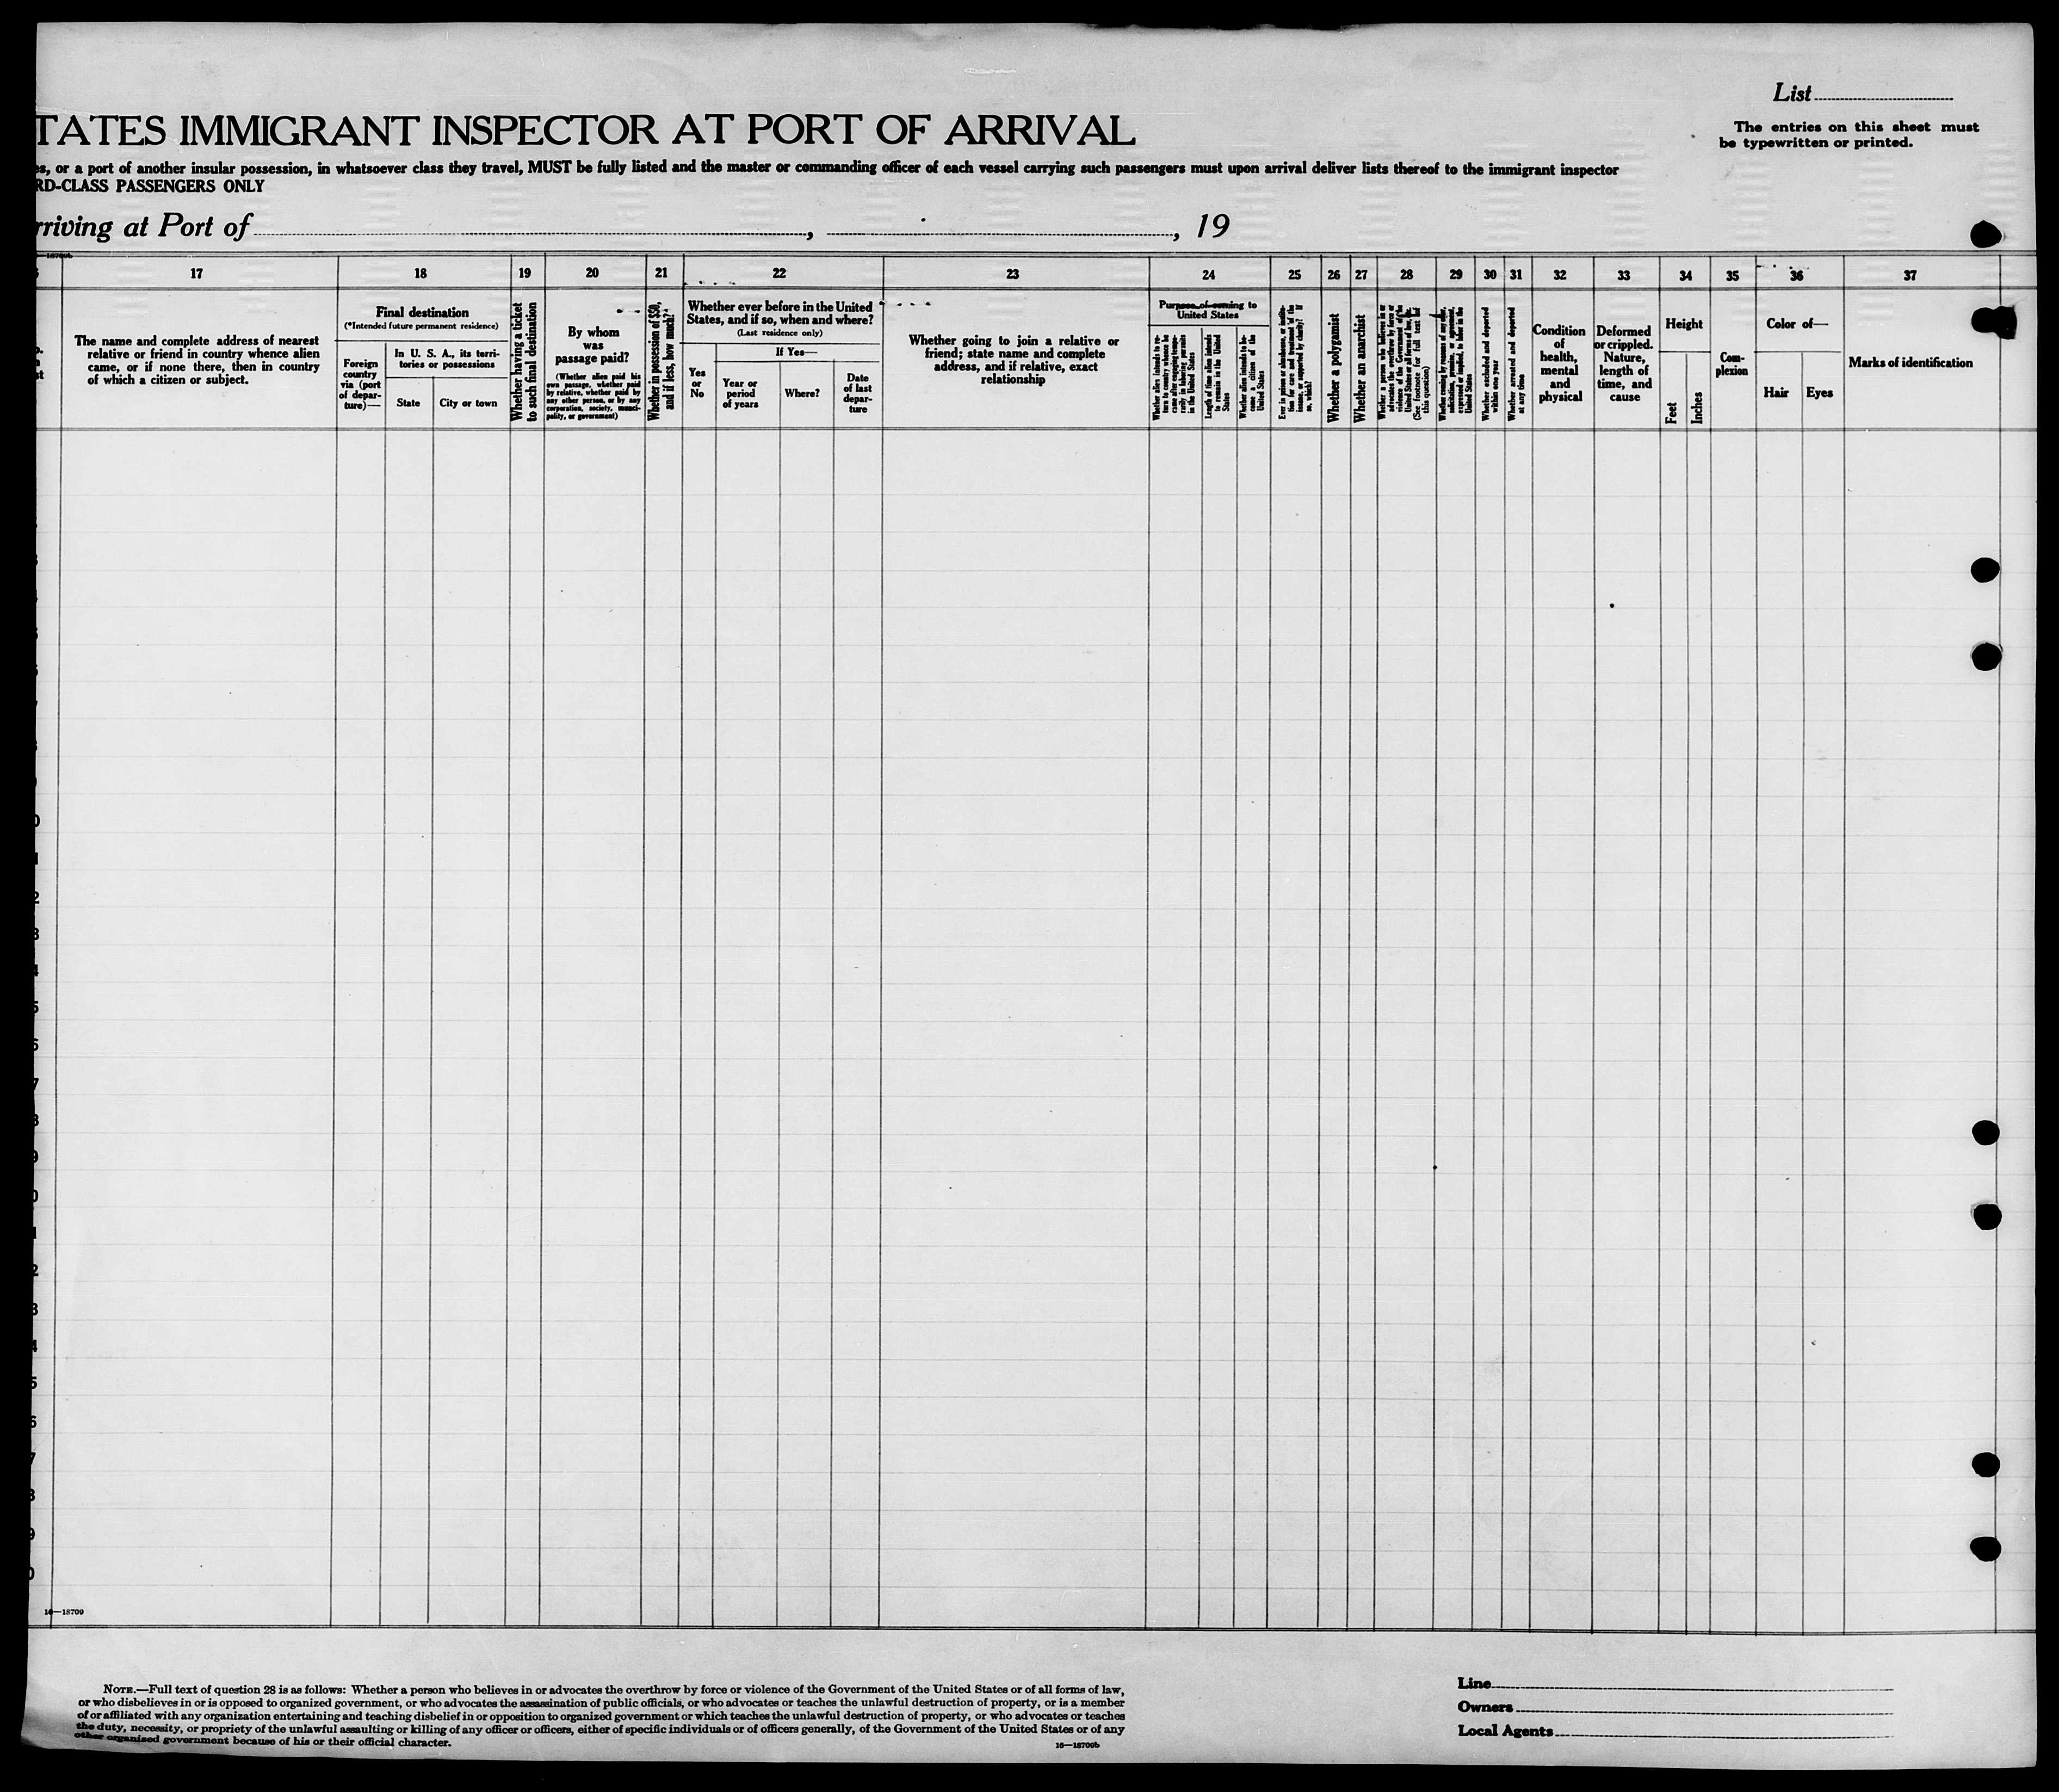 List
TATES IMMIGRANT INSPECTOR AT PORT OF ARRIVAL
The entries on this sheet must
be typewritten or printed.
es, or a port of another insular possession, in whatsoever class they travel, MUST be fully listed and the master or commanding officer of each vessel carrying such passengers must upon arrival deliver lists thereof to the immigrant inspector
RD-CLASS PASSENGERS ONLY
rriving at Port of , , 19
17 18 19 20 21 22 23 24 25 26 27 28 29 30 31 32 33 34 35 36 37
The name and complete address of nearest
relative or friend in country whence alien
came, or if none there, then in country
of which a citizen or subject.
Final destination
(*Intended future permanent residence)
Foreign
country
via (port
of depar-
ture)—
In U. S. A., its terri-
tories or possessions
State
City or town
Whether having a ticket
to such final destination
By whom
was
passage paid?
(Whether alien paid his
own passage, whether paid
by relative, whether paid by
any other person, or by any
corporation, society, munici-
pality, or government)
Whether in possession of $50,
and if less, how much?
Whether ever before in the United
States, and if so, when and where?
(Last residence only)
Yes
or
No
If Yes—
Year or
period
of years
Where?
Date
of last
depar-
ture
Whether going to join a relative or
friend; state name and complete
address, and if relative, exact
relationship
Purpose of coming to
United States
Whether alien intends to re-
turn to country whence he
came after engaging tempo-
rarily in laboring pursuits
in the United States
Length of time alien intends
to remain in the United
States
Whether alien intends to be-
come a citizen of the
United States
Ever in prison or almshouse, or institu-
tion for care and treatment of the
insane, or supported by charity? If
so, which?
Whether a polygamist
Whether an anarchist
Whether a person who believes in or
advocates the overthrow by force or
violence of the Government of the
United States or all forms of law, etc.
(See footnote for full text of
this question)
Whether coming by reasons of any offer,
solicitation, promise, or agreement,
expressed or implied, to labor in the
United States
Whether excluded and deported
within one year
Whether arrested and deported
at any time
Condition
of
health,
mental
and
physical
Deformed
or crippled.
Nature,
length of
time, and
cause
Height
Feet
Inches
Com-
plexion
Color of—
Hair
Eyes
Marks of identification
16—18709
NOTE.—Full text of question 28 is as follows: Whether a person who believes in or advocates the overthrow by force or violence of the Government of the United States or of all forms of law,
or who disbelieves in or is opposed to organized government, or who advocates the assassination of public officials, or who advocates or teaches the unlawful destruction of property, or is a member
of or affiliated with any organization entertaining and teaching disbelief in or opposition to organized government or which teaches the unlawful destruction of property, or who advocates or teaches
the duty, necessity, or propriety of the unlawful assaulting or killing of any officer or officers, either of specific individuals or of officers generally, of the Government of the United States or of any
other organized government because of his or their official character.
16—18709b
Line
Owners
Local Agents